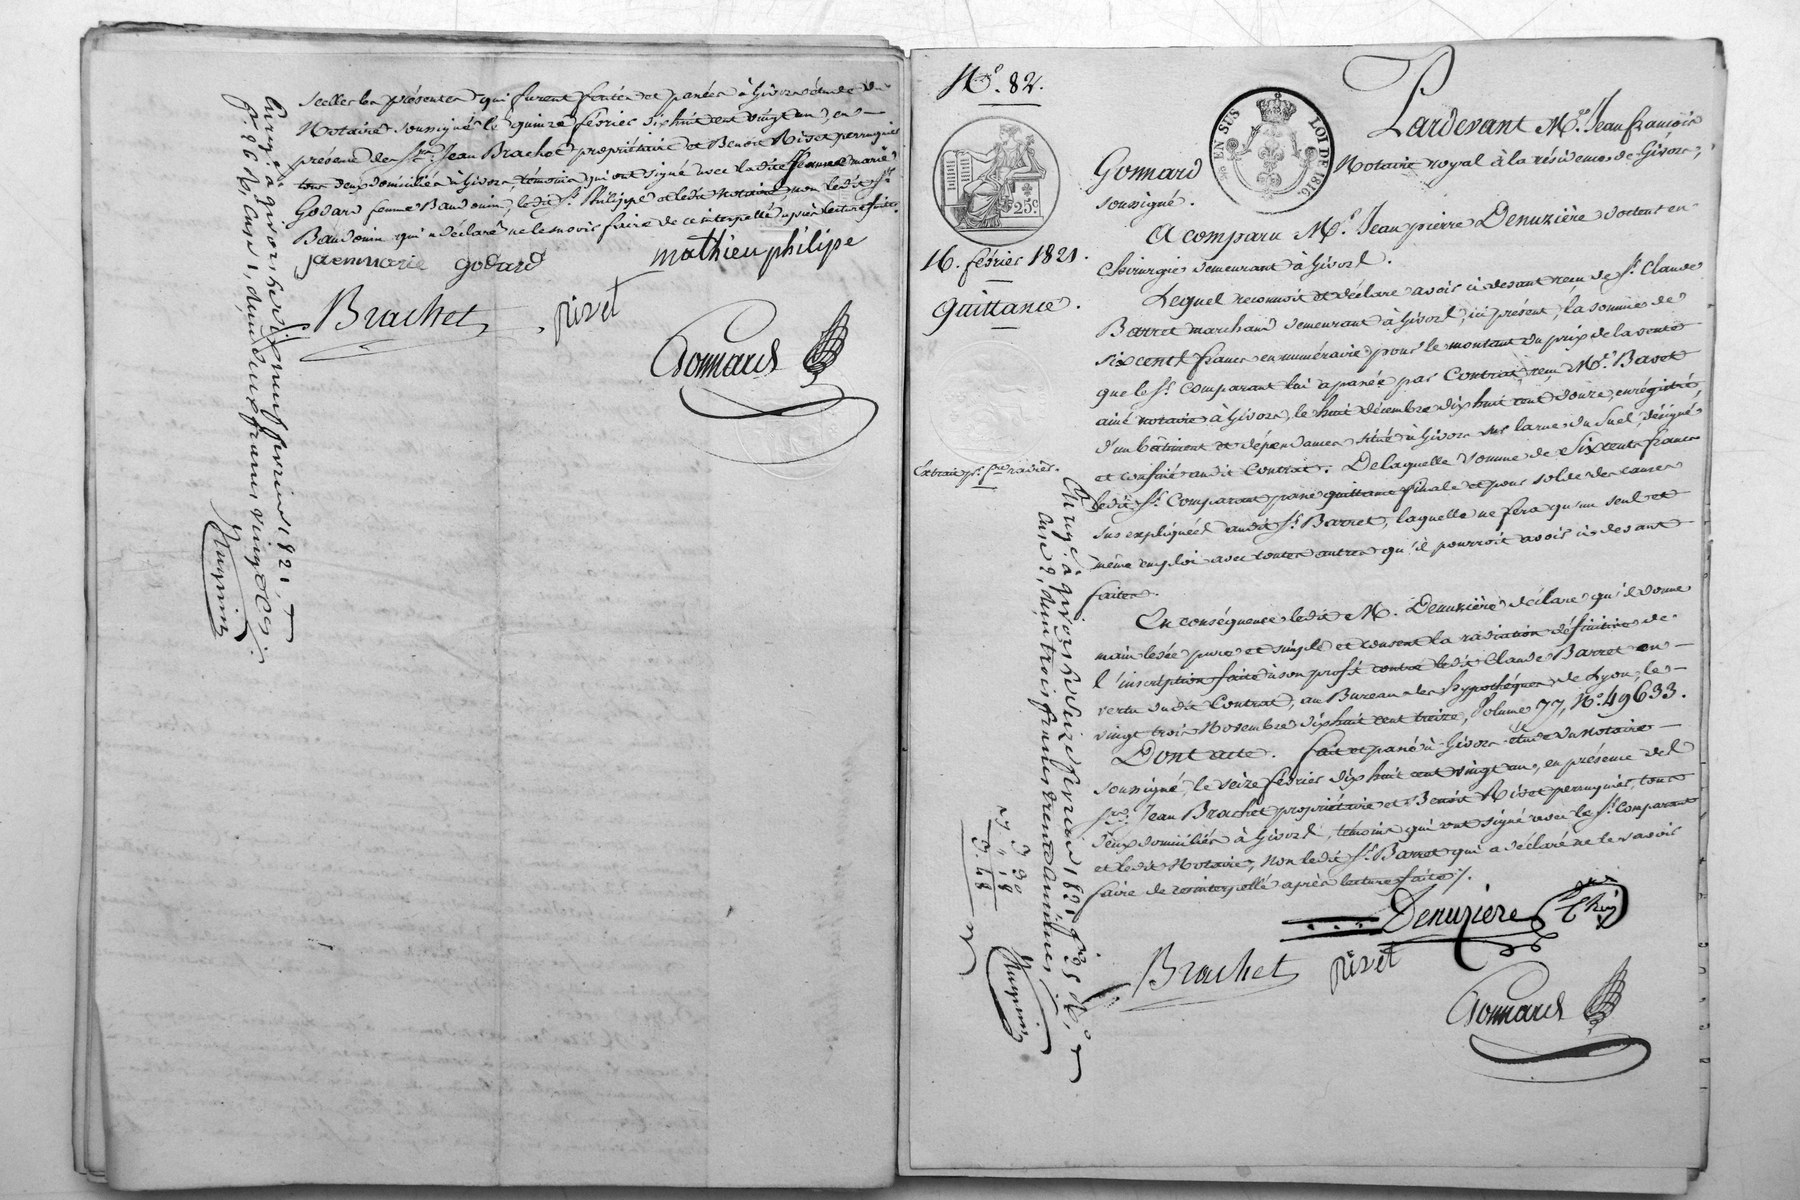 scelles les présentes qui furent faites et passées à Givors étude du
Notaire soussigné le quinze février dix huit cent vingt un, en
présence des Srs. Jean Brachet propriétaire et Benoit Rivet perruquier
tous deux domiciliés à Givors, témoins qui ont signé avec la dite Jeanne marie
Godard femme Baudouin, ledit Sr. Philippe et ledit Notaire, non ledit Sr.
Baudouin qui a déclaré ne le savoir faire de ce interpellé après lecture faite.
godard
mathieu philipe
Brachet
rivet
Gonnard
Enrgé à givors le dix neuf fevrier 1821,
f. 96 Ro. Case 1, reçu deux francs vingt c.
Nº. 82.
EN SUS
LOI DE 1816.
25 c.
16. février 1821.
Quittance.
Extrait pr. fre. radier.
Pardevant Me. Jean françois
Gonnard Notaire royal à la résidence de Givors,
soussigné.
A comparu Mr. Jean pierre Denuzière docteur en
chirurgie demeurant à Givors.
Lequel reconnoit et déclare avoir ci devant reçu de Sr. Claude
Barret marchand demeurant à Givors, ici présent, la somme de
six cents francs en numéraire, pour le montant du prix de la vente
que le Sr. Comparant lui a passée par Contrat reçu Me.
ainé notaire à Givors, le huit décembre dix huit cent douze, enrégistré,
d'un bâtiment et dépendances situé à Givors sur la rue du Suel, désigné
et confiné audit Contrat. De laquelle somme de six cents francs
ledit Sr. Comparant passe quittance finale et pour solde des causes
sus expliquées audit Sr. Barret, laquelle ne fera qu'un seul et
même emploi avec toutes autres qu'il pourroit avoir ci devant
faites.
En conséquence ledit M. Denuzière déclare qu'il donne
main levée pure et simple et consent la radiation définitive de
l'inscription faite à son profit contre ledit Claude Barret en
vertu dudit Contrat, au Bureau des hypothèques de Lyon, le
vingt trois Novembre dix huit cent treize, Volume 77, Nº. 49633.
Dont acte. fait et passé à Givors étude du Notaire
soussigné, le seize février dix huit cent vingt un, en présence des
Srs. Jean Brachet propriétaire et Benoit Rivet perruquier, tous
deux domiciliés à Givors, témoins qui ont signé avec le Sr. Comparant
et ledit Notaire, non ledit Sr. Barret qui a déclaré ne le savoir
faire de ce interpellé après lecture faite /.
Denuzière
Brachet
rivet
Gonnard
Enrgé à givors le seize fevrier 1821 fo. 95 Ro.
Case 2, reçu trois francs trente centimes
3 30
3. 48